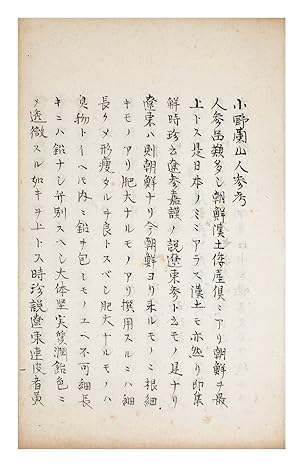 小野蘭山人参考
人参品類多シ朝鮮漢土倭産倶ニアリ朝鮮ヲ最
上トス是日本ノミニアラス漢土モ亦然リ即集
解時珍云遼参嘉謨ノ説遼東参ト云モノ是ナリ
遼東ハ則朝鮮ナリ今朝鮮ヨリ来ルモノニ根細
キモノアリ肥大ナルモノアリ撰用スルニハ細
長クメ形痩タルヲ良トスベシ肥大ナルモノハ
臭物トーヘ内ニ鉛ヲ包ムモノユヘ不可細長
キニハ鉛ナシ弁別スヘシ大体堅実質潤飴色ニ
メ透徹スル如キヲ上トス時珍説遼東連皮者黄